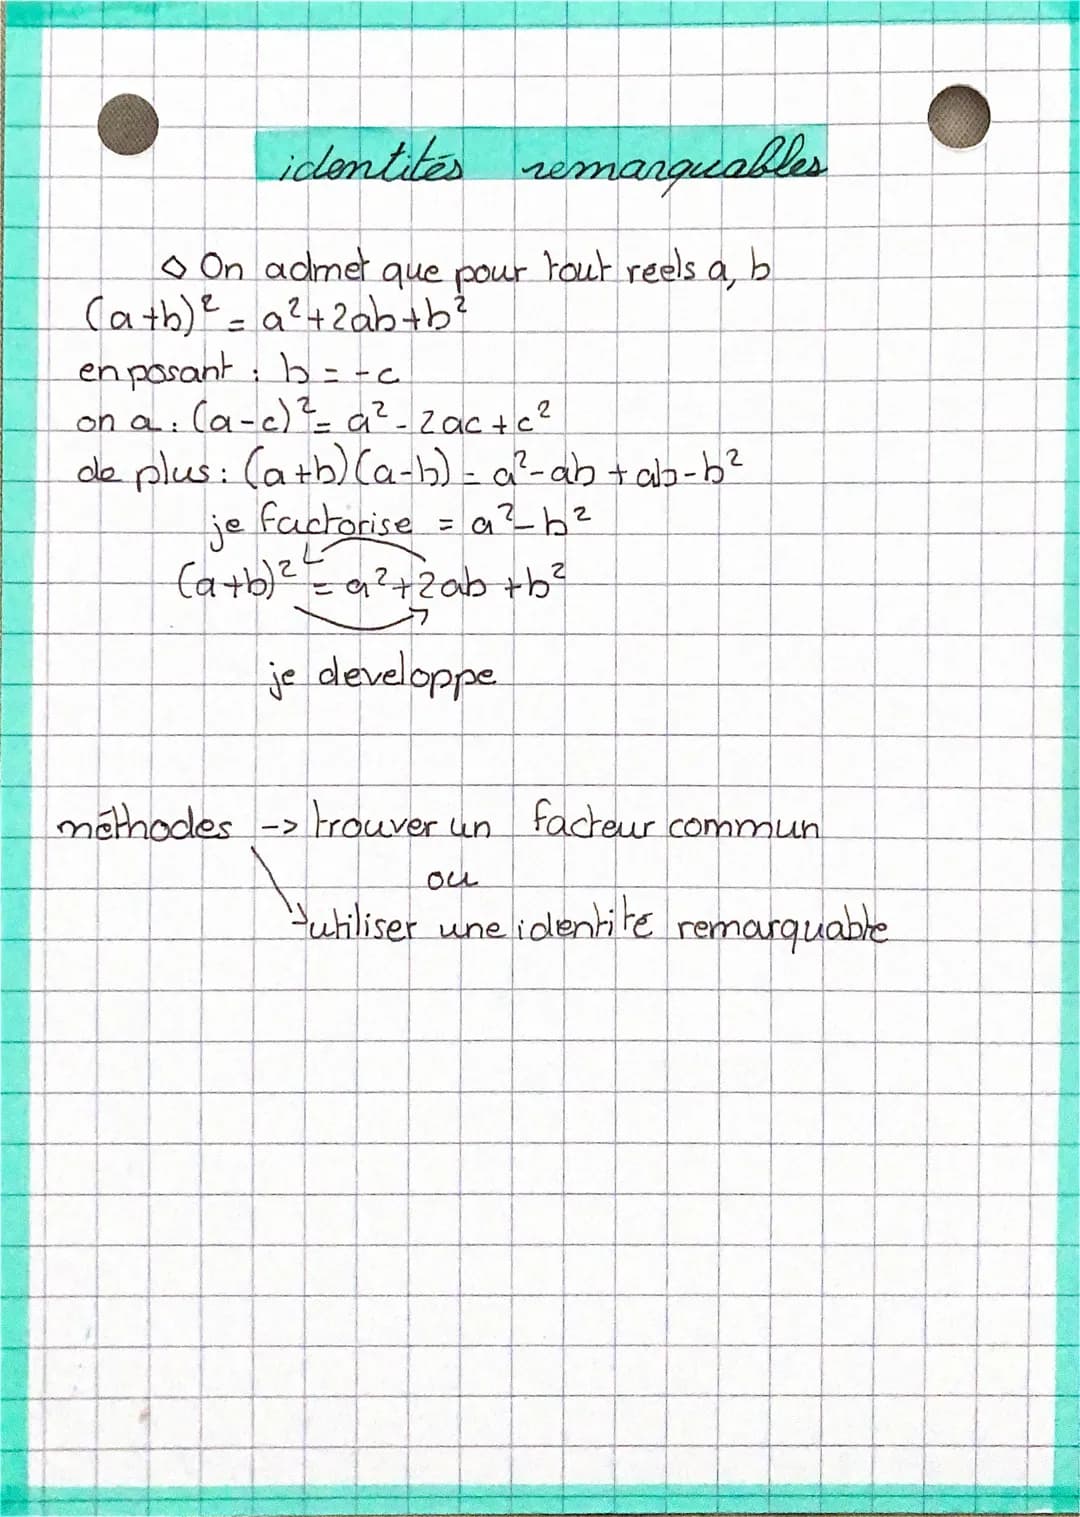 identités remarquables
◇ On admet que pour tout reels a, b
(a+b)² = a²+2ab+b²
en posant : b = -c
on a : (a-c)² = a² - 2ac + c²
de plus : (a+b)(a-b) = a²-ab + ab-b²
je factorise = a²-b²
(a+b)² = a²+2ab+b²
je developpe
méthodes -> trouver un facteur commun
ou
utiliser une identité remarquable